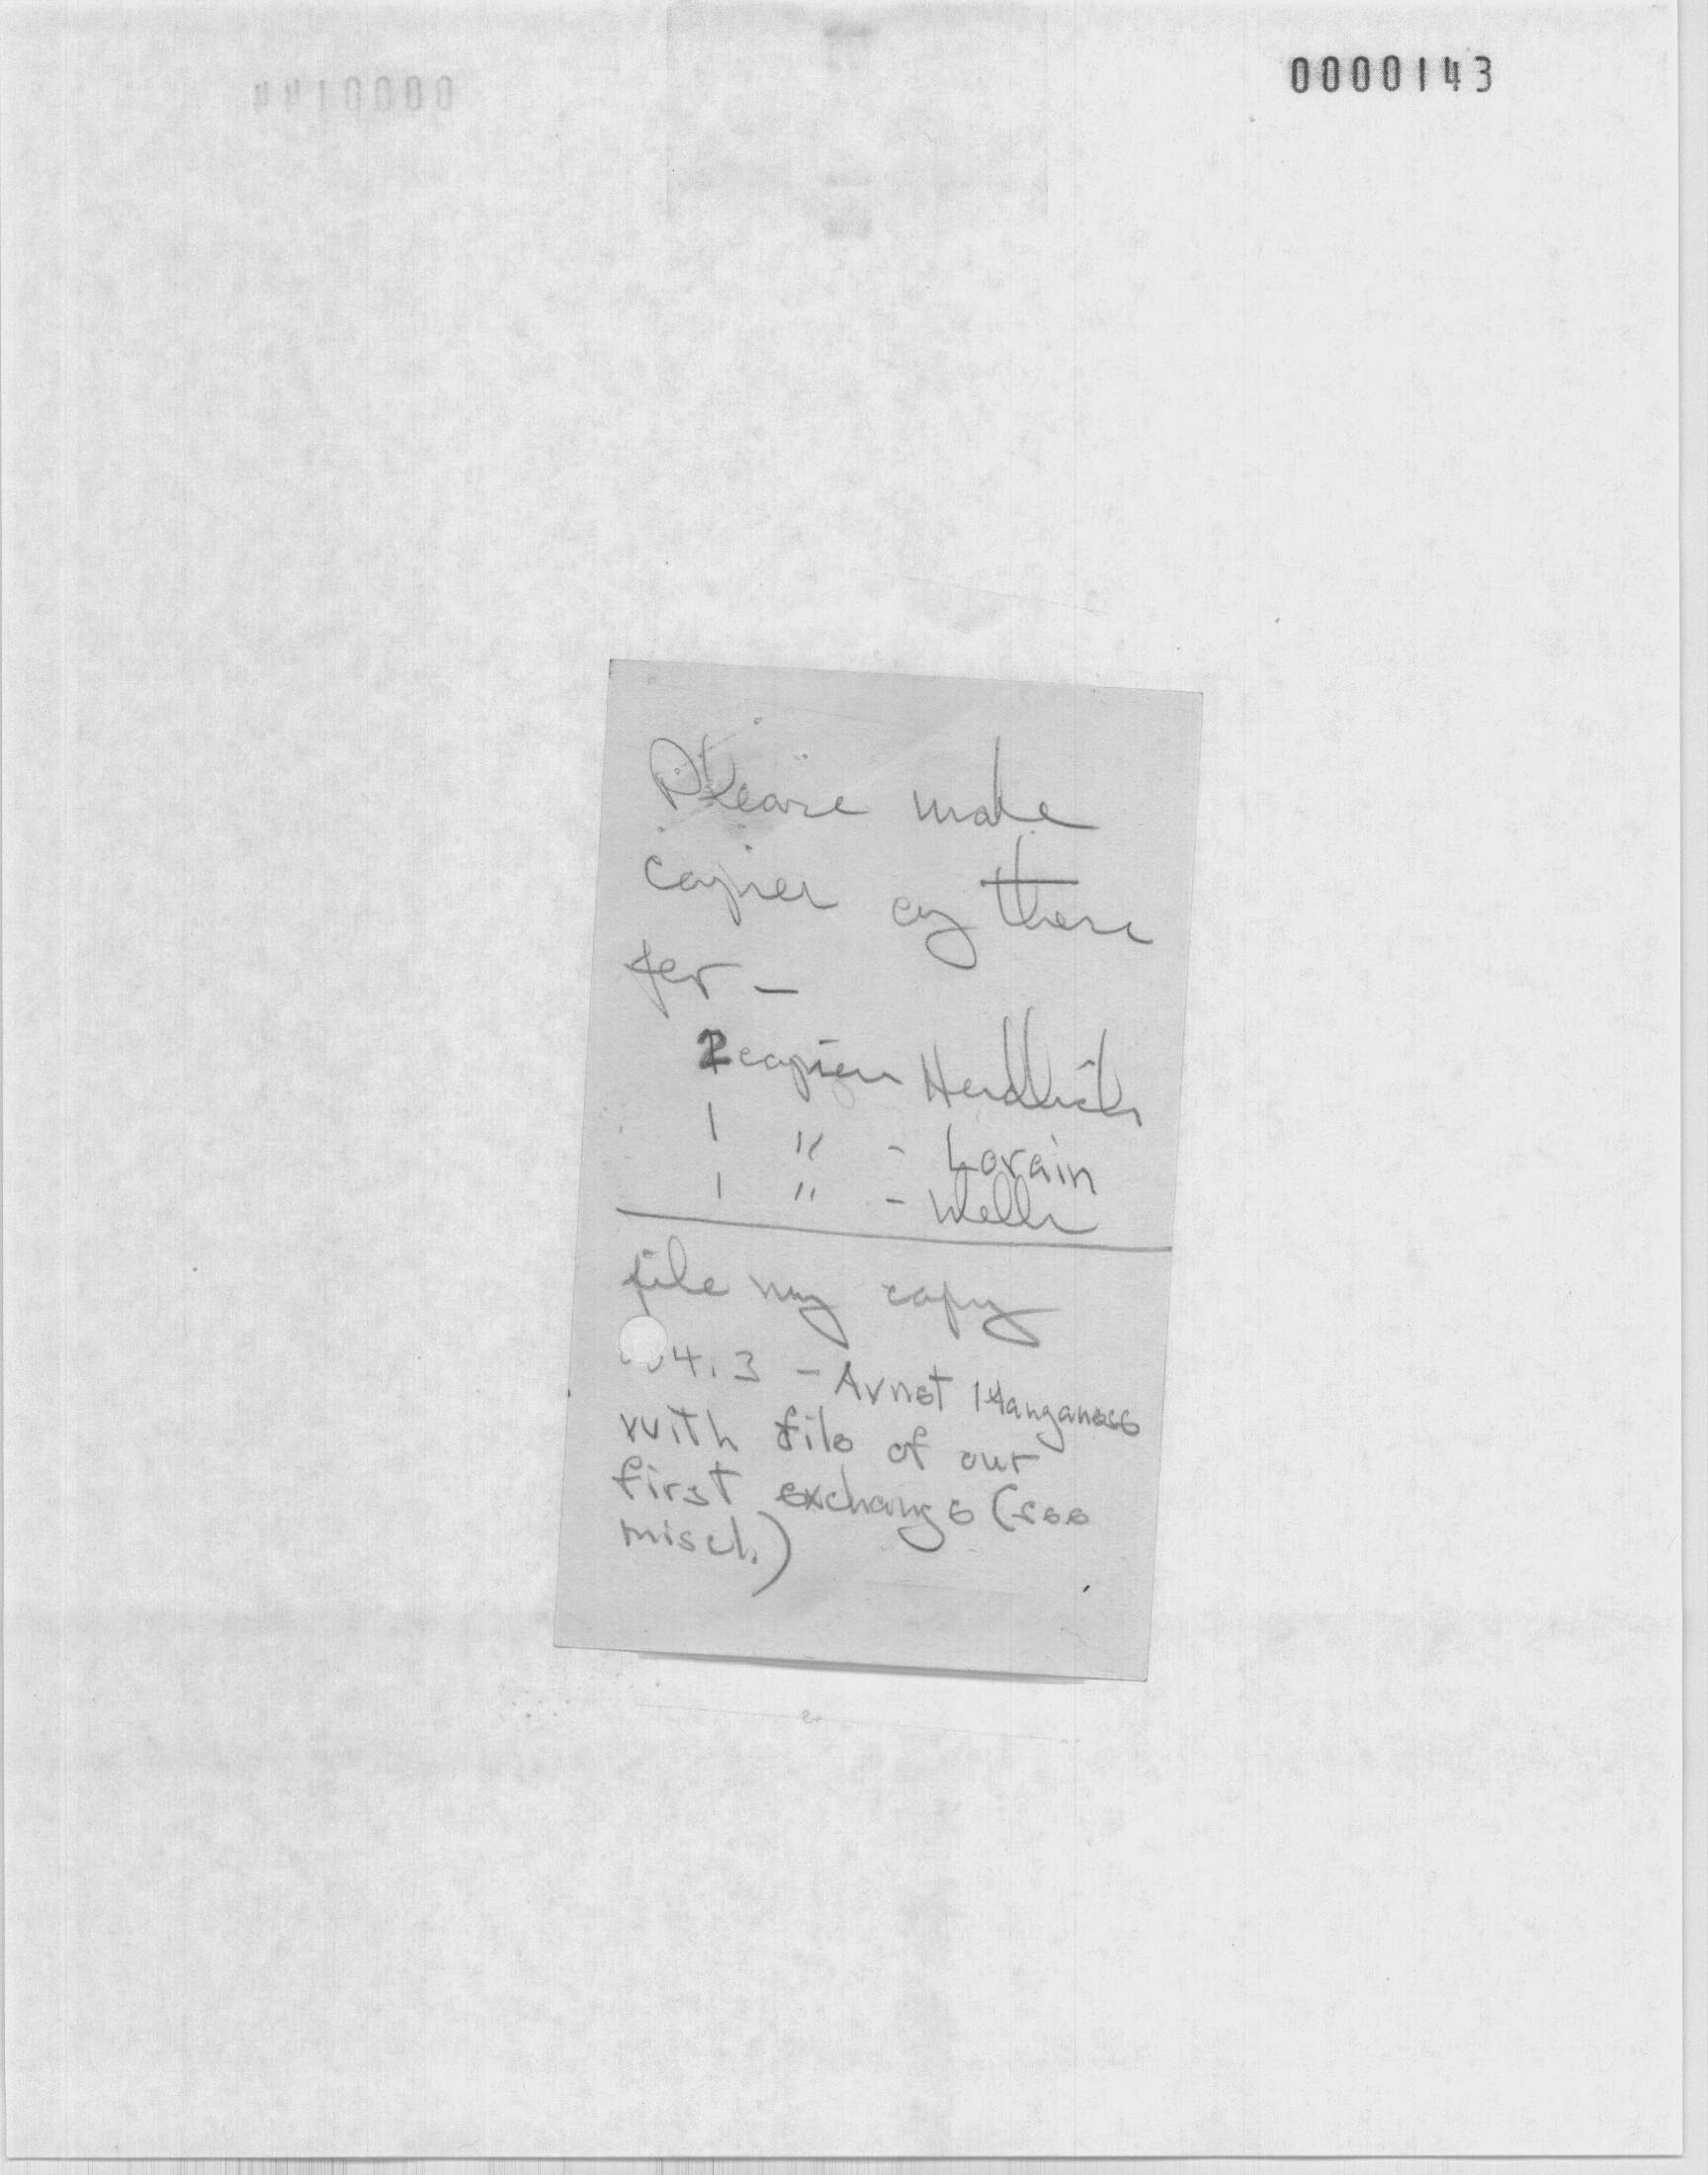 0000143
Please make
copies of these
for —
2 copies Hendricks
1 " - Lorain
1 " - Wells
file my copy
4.3 - Arnot Manganese
with file of our
first exchange (see
miscl.)